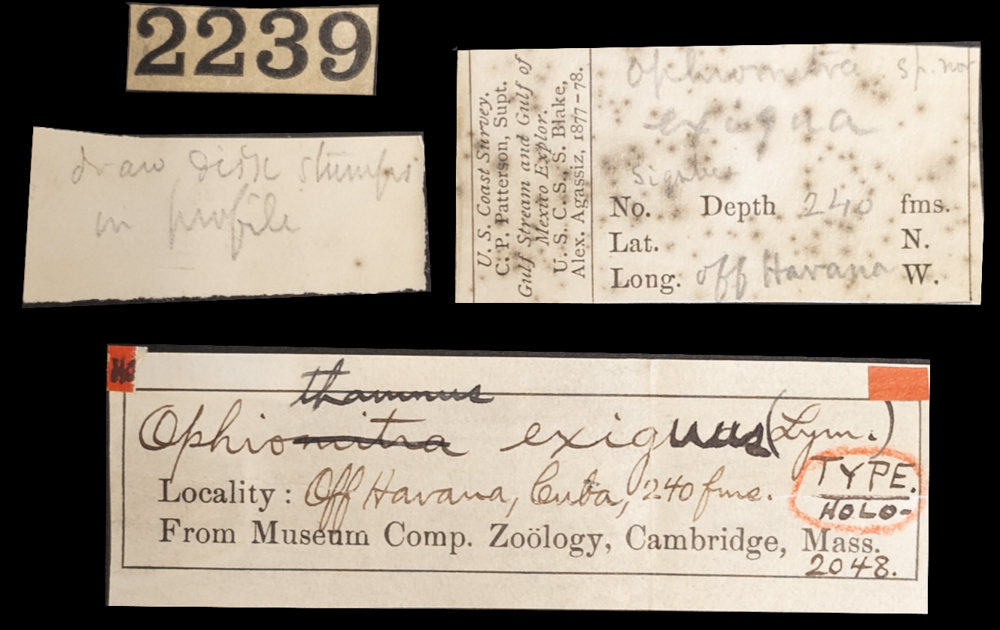 2239
draw disk stumps
in profile
U. S. Coast Survey.
C. P. Patterson, Supt.
Gulf Stream and Gulf of
Mexico Explor.
U. S. C. S. S. Blake,
Alex. Agassiz, 1877-78.
Ophiomitra sp. nov
exigua
No. Depth 240 fms.
Lat. N.
Long. off Havana W.
thamnus
Ophiomitra exiguus (Lym.)
TYPE.
HOLO-
Locality: Off Havana, Cuba, 240 fms.
From Museum Comp. Zoölogy, Cambridge, Mass.
2048.